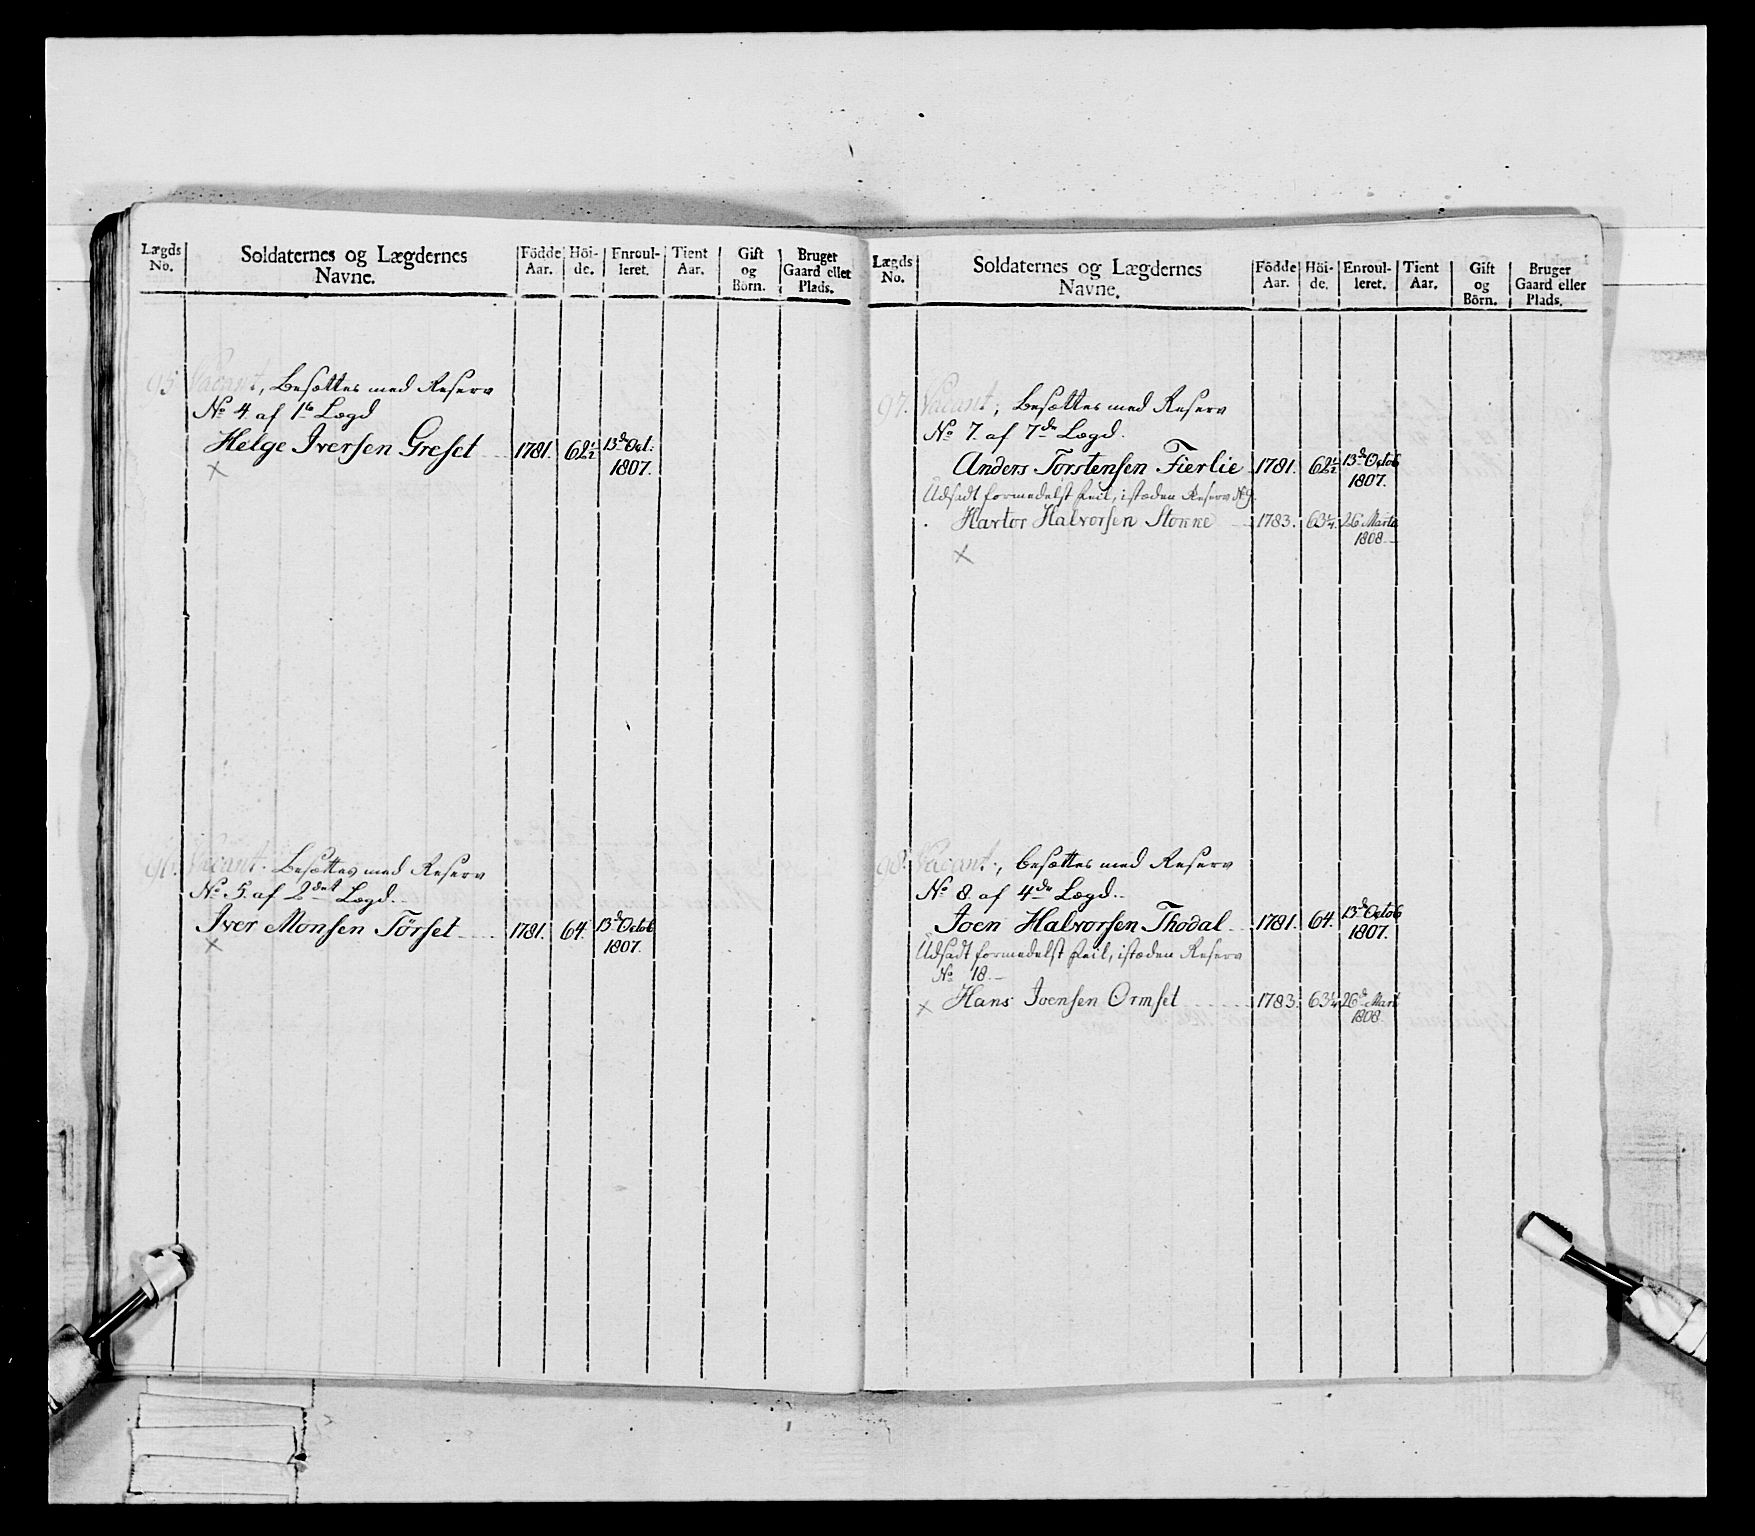 Lægds No.
Soldaternes og Lægdernes Navne.
Födde Aar.
Höi-de.
Enroul-leret.
Tient Aar.
Gift og Börn.
Bruger Gaard eller Plads.
95. Vacant, Besættes med Reserv
No 4. af 1te Lægd
Helge Iversen Greset 1781. 62½ 13de Oct: 1807.
×
96. Vacant. Besættes med Reserv
No. 5. af 2det Lægd.
Iver Monsen Törset 1781. 64. 13de Octob 1807.
×
Lægds No.
Soldaternes og Lægdernes Navne.
Födde Aar.
Höi-de.
Enroul-leret.
Tient Aar.
Gift og Börn.
Bruger Gaard eller Plads.
97. Vacant; Besættes med Reserv
No 7. af 7de Lægd.
Anders Torstensen Fierlie 1781. 62½ 13de Octob 1807.
Udsadt formedelst Feil, istæden Reserv No 9.
Halvorsen 1783. 63¼ 26 Marti 1808
×
98. Vacant; besættes med Reserv
No 8. af 4de Lægd.
Joen Halvorsen Thodal 1781. 64. 13de Octob 1807.
Udsadt formedelst Feil, istæden Reserv
No 18.
× Hans Joensen Ormset 1783. 63¼ 26de Marti 1808.